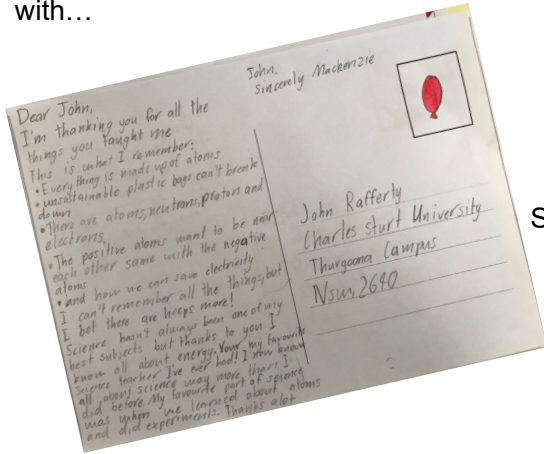 with…
Dear John,
I'm thanking you for all the
things you taught me
This is what I remember:
• Everything is made up of atoms
• unsustainable plastic bags can't break
down
• There are atoms, neutrons, proton and
electrons,
• The positive atoms want to be near
each other same with the negative
atoms
• and how we can save electricity
I can't remember all the things, but
I bet there are heeps more!
Science hasn't always been one of my
best subjects but thanks to you I
know all about energy. Your my favourite
science teacher I've ever had! I now know
all about science way more than I
did before. My favourite part of science
was when we learned about atoms
and did experiments. Thanks alot
John,
sincerely Mackenzie
John Rafferty
Charles sturt University
Thurgoona Campus
Nsw, 2640
S